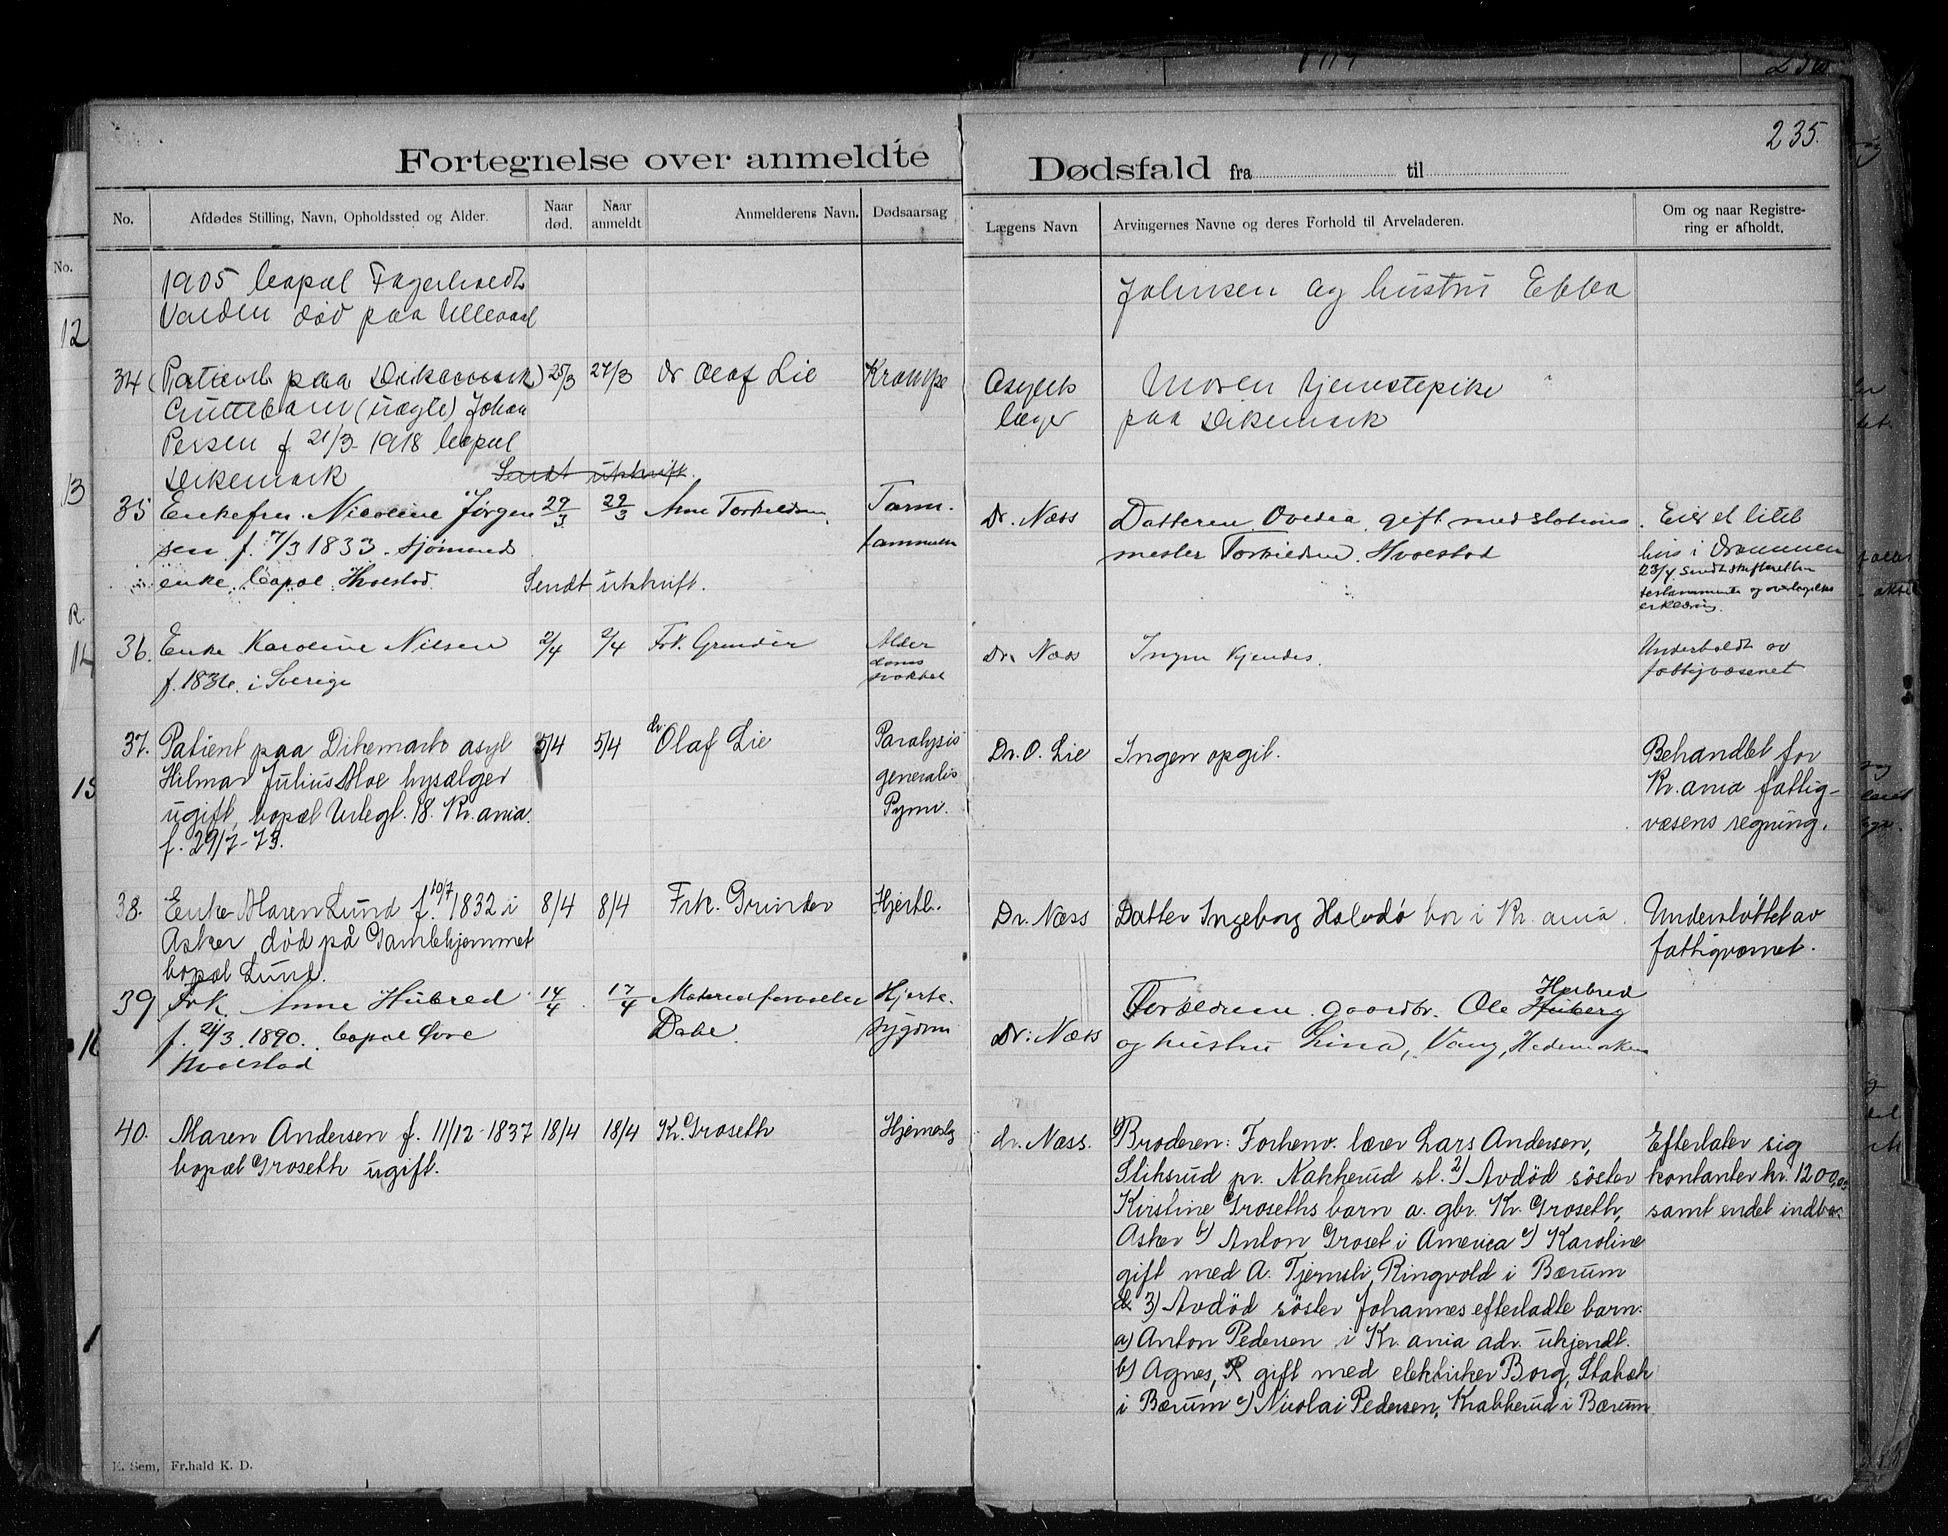 235.
Fortegnelse over anmeldte Dødsfald fra til
No. Afdødes Stilling, Navn, Opholdssted og Alder. Naar død. Naar anmeldt Anmelderens Navn. Dødsaarsag Lægens Navn Arvingernes Navne og deres Forhold til Arveladeren. Om og naar Registrering er afholdt.
1905 bopæl Fagerholdt
død paa Ullevaal
Johnsen og hustru Ebba
34 (Patient paa Dikemark) 25/3 27/3 Dr Olaf Lie Krampe Asylets Moren tjenestepike
Guttebarn (uægte) Johan læger paa Dikemark
Persen f. 21/3-1918 bopæl
Dikemark Sendt utskrift.
35 Enkefru Nicoline Jørgen 29/3 29/3 Anne Torkildsen Tarm. Dr. Næss Datteren Ovedia gift med stations Eier et litet
sen f. 7/3 1833. sjømands mester Torkildsen. Hvalstad hus i Drammen
enke, bopæl Hvalstad. Sendt utskrift. 23/4 sendt skifteretten
testamente og
erklæring.
36. Enke Karoline Nilsen 2/4 2/4 Frk. Grinder Alder Dr. Næss Ingen kjendes. Underholdt av
f. 1836. i Sverige doms fattigvæsenet
svakhet
37. Patient paa Dikemark asyl 5/4 5/4 dr. Olaf Lie Paralysis Dr. O. Lie Ingen opgit. Behandlet for
Hilmar Julius Moe generalis Kr.ania fattig-
ugift, bopæl Urtegt. 18. Kr.ania. væsens regning.
f. 29/7-73.
38. Enke Maren Lund f. 10/7 1832 i 8/4 8/4 Frk. Grinder Hjertl. Dr. Næss Datter Ingeborg Halvdø bor i Kr.ania. Understøttet av
Asker, død på Gamlehjemmet fattigvæsnet.
bopæl Lund.
39 Frk. Anne Hubred 14/4 17/4 Materialforvalter Hjerte- Dr. Næss Forældrene gaardbr. Ole Huberg Hubred
f. 24/3. 1890. bopæl Øvre Dahl. sygdom og hustru Lina, Vang, Hedemarken
Hvalstad
40. Maren Andersen f. 11/12-1837 18/4 18/4 Kr. Groseth Hjerneslg dr. Næss. Broderen: Forhenv. lærer Lars Andersen, Efterlater sig
bopæl Groseth ugift. Sliksrud pr. Nakkerud st. 2) Avdød søster kontanter kr. 1200,00
Kirstine Groseths barn a. gbr. Kr. Groseth, samt endel indbo.
Asker b) Anton Groset i America c) Karoline
gift med A. Tjernsli, Ringvold i Bærum
3) Avdød søster Johannes efterladte barn:
a) Anton Pedersen i Kr.ania adr. ukjendt.
b) Agnes, gift med elektriker Borg, Stabæk
i Bærum c) Nicolai Pedersen, Krakkerud i Bærum.
E. Sem, Fr.hald K. D.
No.
12
13
R.
14
15